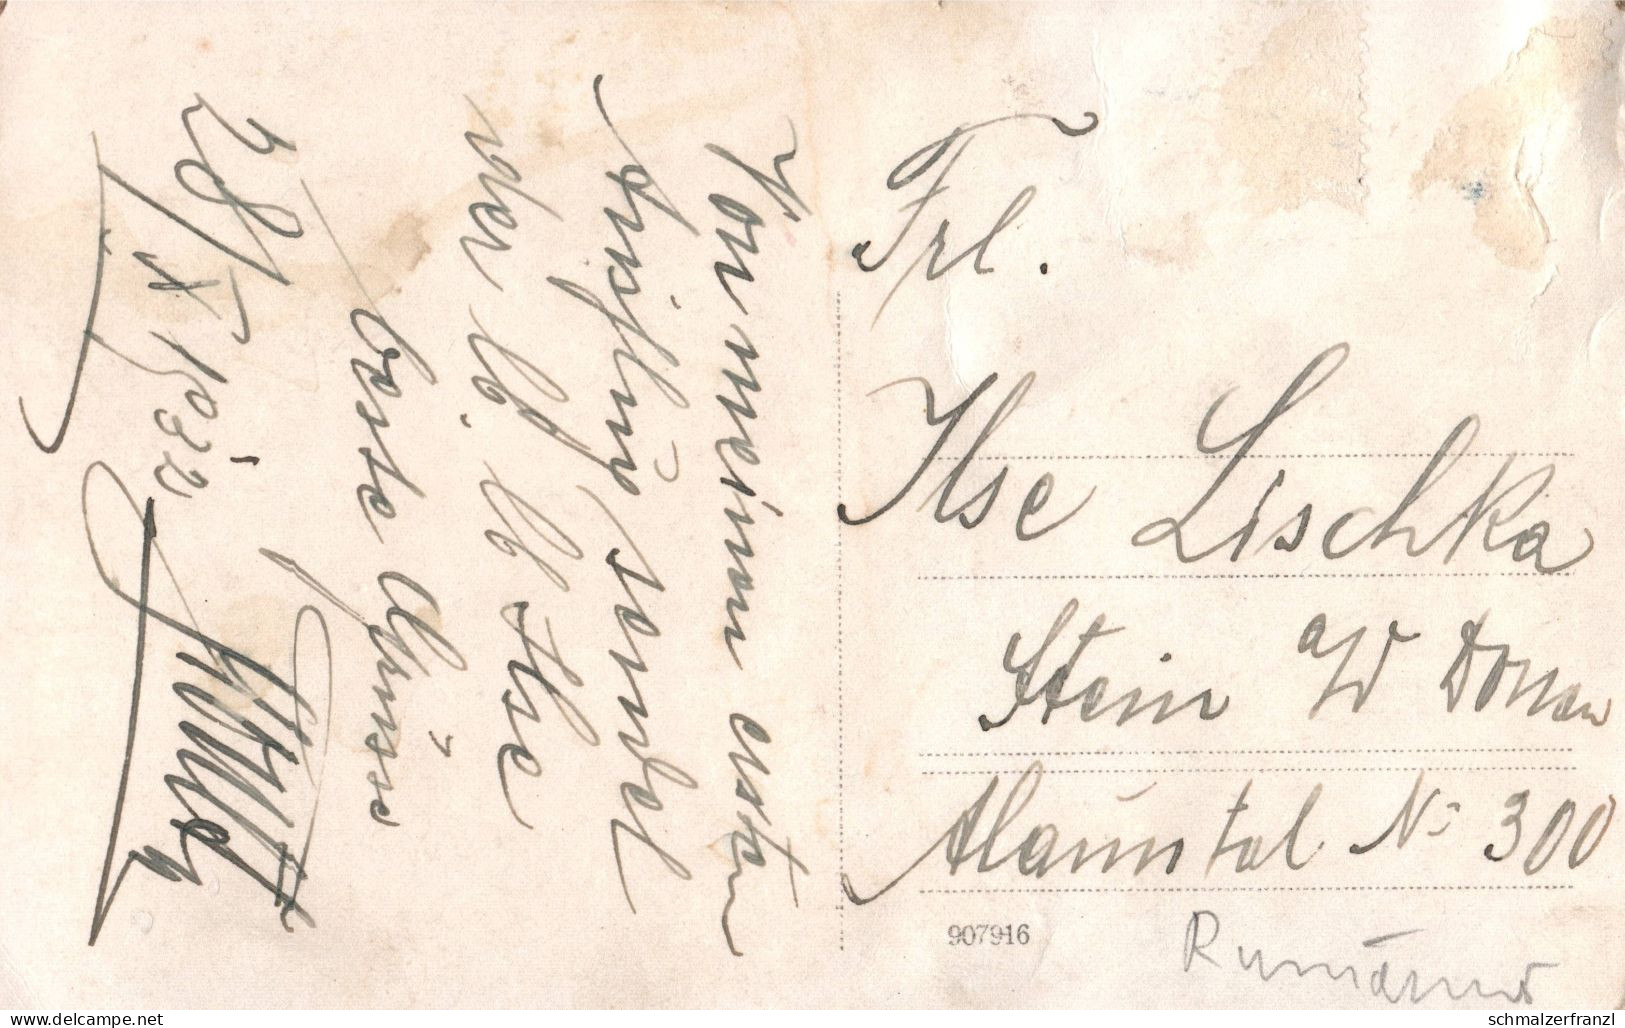 Von meinem ersten
Ausflug sendet
der lb. lb Ilse
beste Grüsse
28/X 1932
Frl.
Ilse Lischka
Stein a/D Donau
Alauntal No 300
907916
Rumänien
www.delcampe.net
schmalzerfranzl